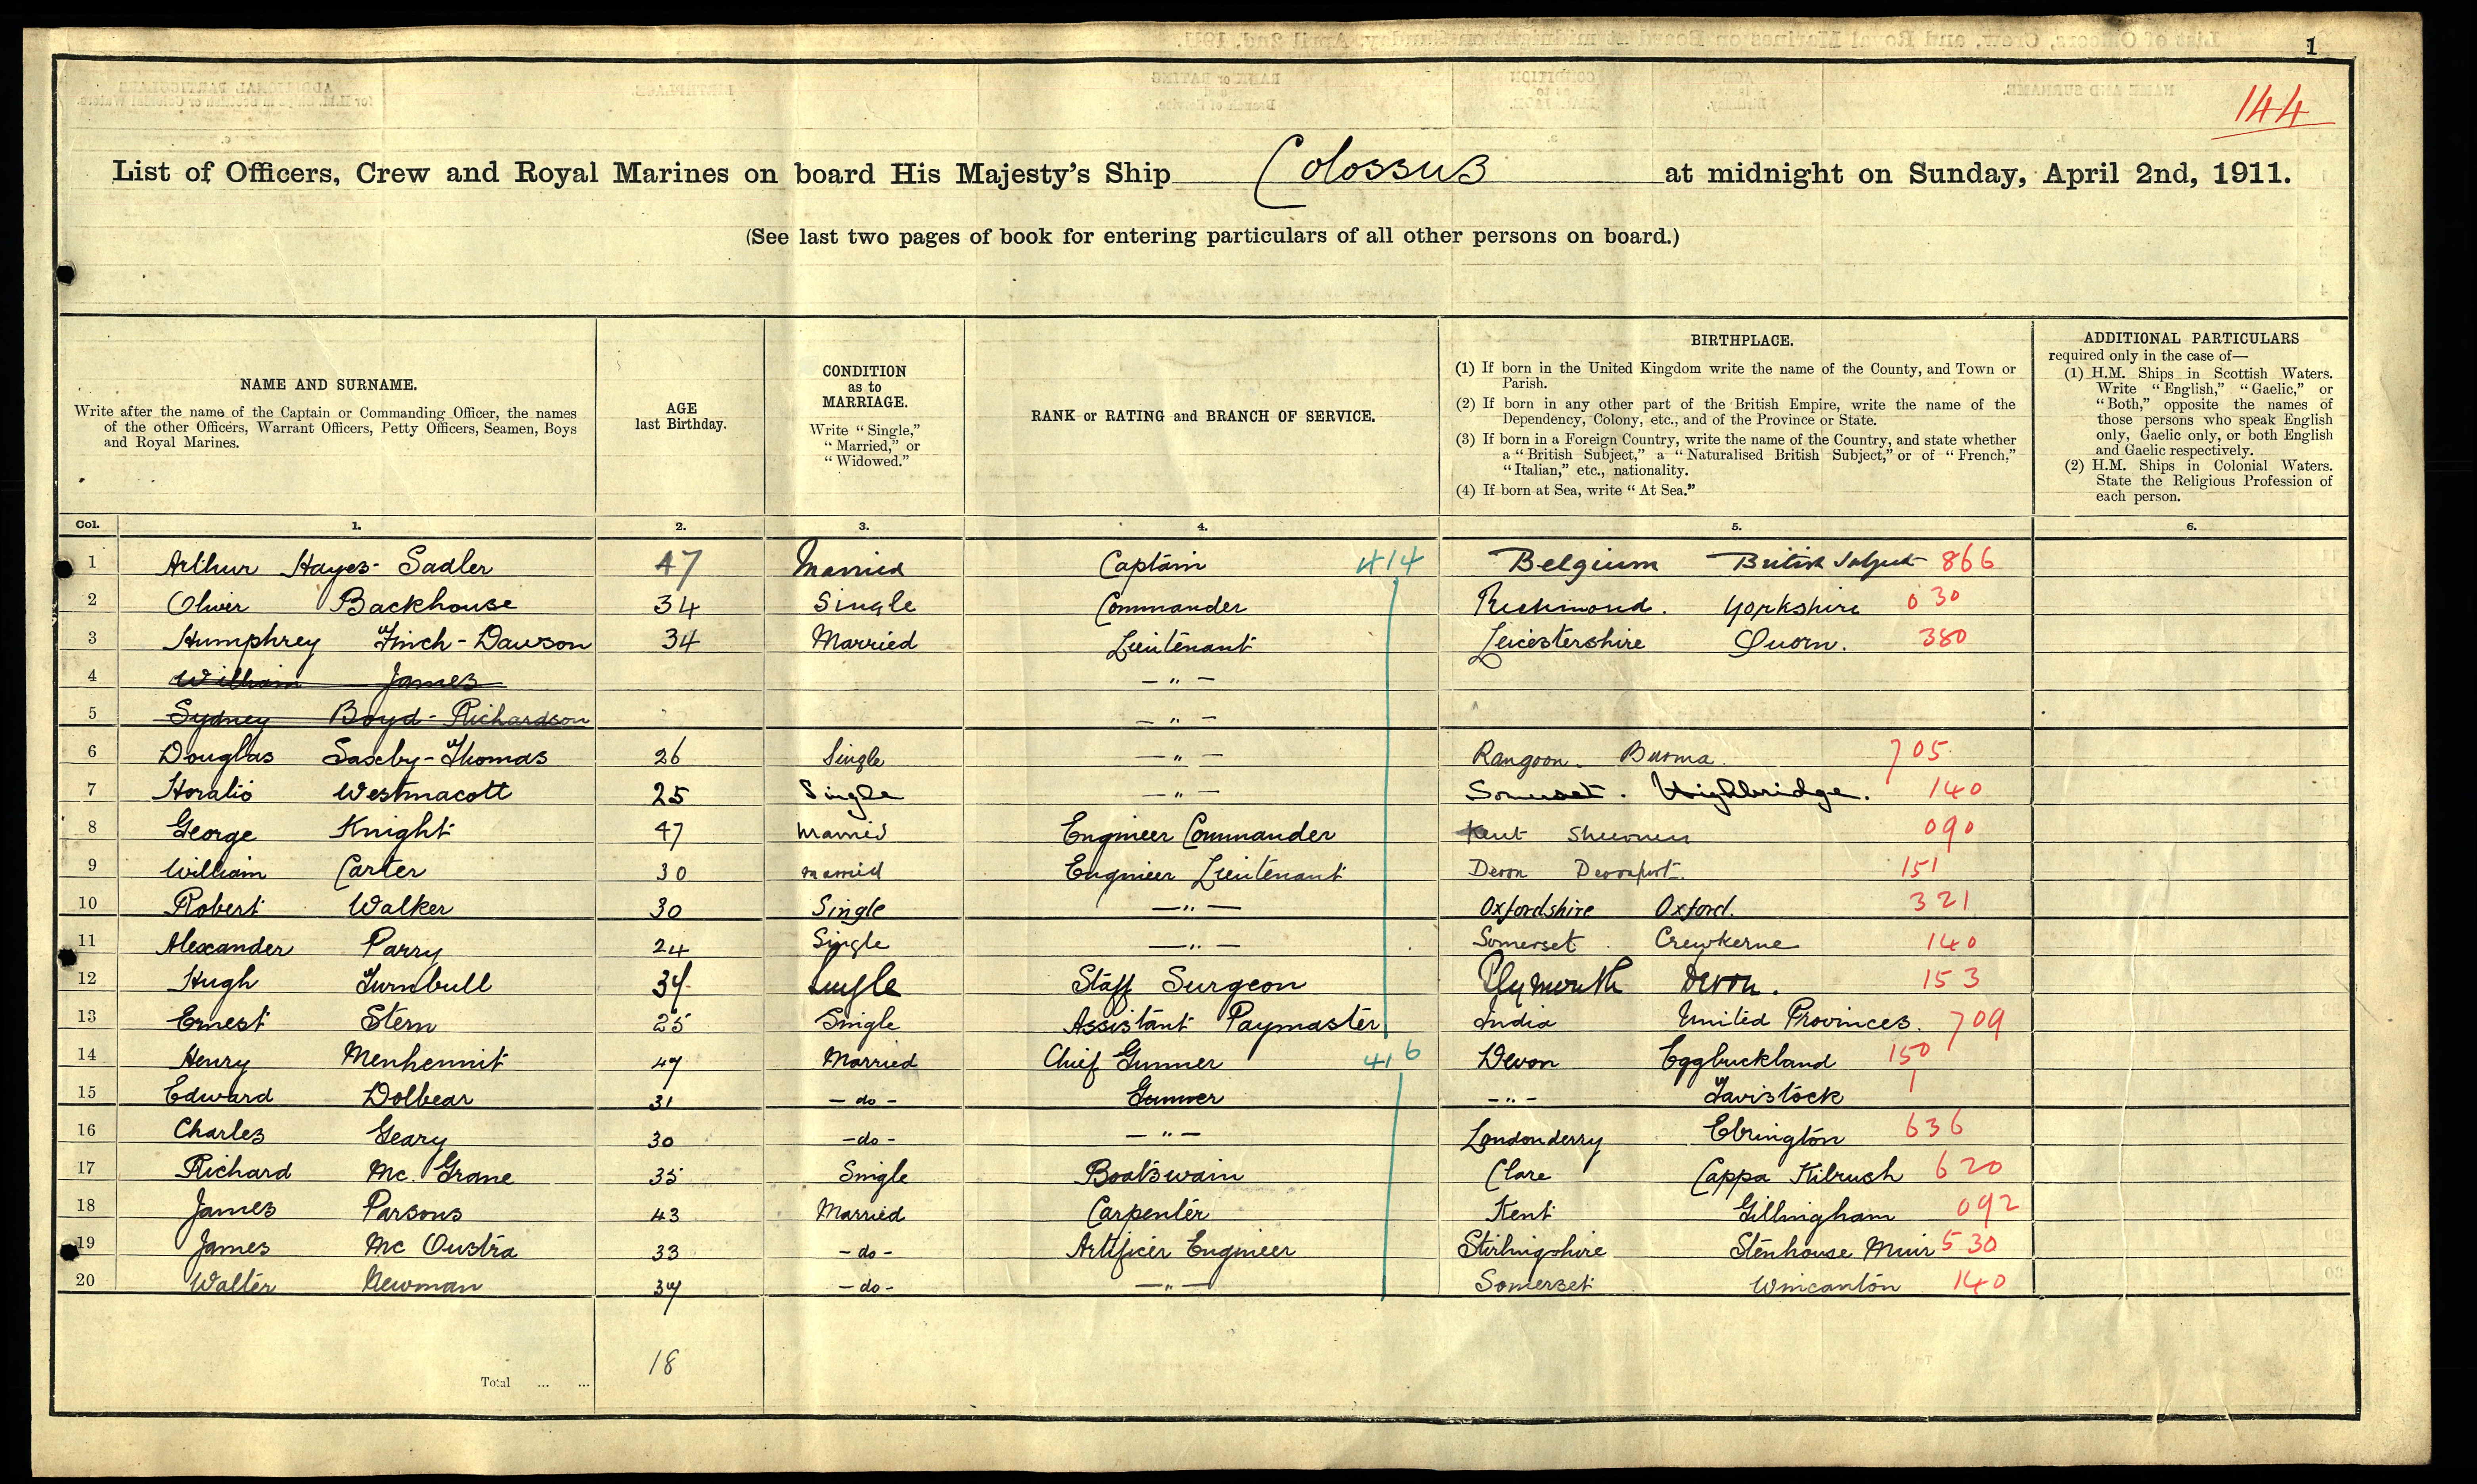 1
144
List of Officers, Crew and Royal Marines on board His Majesty's Ship Colossus at midnight on Sunday, April 2nd, 1911.
(See last two pages of book for entering particulars of all other persons on board.)
NAME AND SURNAME.
Write after the name of the Captain or Commanding Officer, the names
of the other Officers, Warrant Officers, Petty Officers, Seamen, Boys
and Royal Marines.
AGE
last Birthday.
CONDITION
as to
MARRIAGE.
Write "Single,"
"Married," or
"Widowed."
RANK or RATING and BRANCH OF SERVICE.
BIRTHPLACE.
(1) If born in the United Kingdom write the name of the County, and Town or
Parish.
(2) If born in any other part of the British Empire, write the name of the
Dependency, Colony, etc., and of the Province or State.
(3) If born in a Foreign Country, write the name of the Country, and state whether
a "British Subject," a "Naturalised British Subject," or of "French,"
"Italian," etc., nationality.
(4) If born at Sea, write "At Sea."
ADDITIONAL PARTICULARS
required only in the case of—
(1) H.M. Ships in Scottish Waters.
Write "English," "Gaelic," or
"Both," opposite the names of
those persons who speak English
only, Gaelic only, or both English
and Gaelic respectively.
(2) H.M. Ships in Colonial Waters.
State the Religious Profession of
each person.
Col. 1. 2. 3. 4. 5. 6.
1 Arthur Hayes-Sadler 47 Married Captain 414 Belgium British Subject 866
2 Oliver Backhouse 34 Single Commander Richmond. Yorkshire 030
3 Humphrey Finch-Dawson 34 Married Lieutenant Leicestershire Quorn. 380
4 William James — " —
5 Sydney Boyd-Richardson — " —
6 Douglas Saxby-Thomas 26 Single — " — Rangoon. Burma. 705
7 Horatio Westmacott 25 Single — " — Somerset. Highbridge. 140
8 George Knight 47 Married Engineer Commander Kent Sheerness 090
9 William Carter 30 Married Engineer Lieutenant Devon Devonport. 151
10 Robert Walker 30 Single — " — Oxfordshire Oxford. 321
11 Alexander Parry 24 Single — " — Somerset Crewkerne 140
12 Hugh Turnbull 34 Single Staff Surgeon Plymouth Devon. 153
13 Ernest Stern 25 Single Assistant Paymaster India United Provinces. 709
14 Henry Menhennit 47 Married Chief Gunner 416 Devon Eggbuckland 150
15 Edward Dolbear 31 — do — Gunner — " — Tavistock 1
16 Charles Geary 30 — do — — " — Londonderry Ebrington 636
17 Richard Mc. Grane 35 Single Boatswain Clare Cappa Kilrush 620
18 James Parsons 43 Married Carpenter Kent Gillingham 092
19 James Mc Oustra 33 — do — Artificer Engineer Stirlingshire Stenhouse Muir 530
20 Walter Newman 37 — do — — " — Somerset Wincanton 140
Total ... ... 18